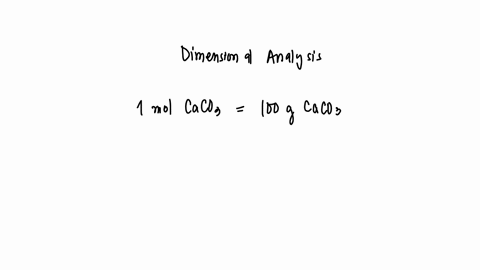 Dimensional Analysis
1 mol CaCO3 = 100 g CaCO3